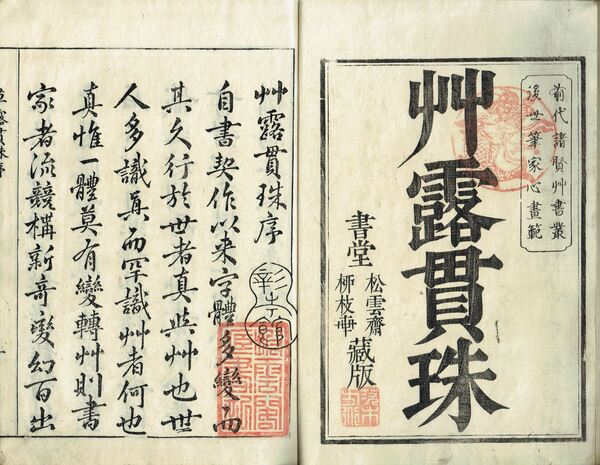 前代諸賢艸書叢
後世筆家心畫範
艸露貫珠
書堂
松雲齋
柳枝軒
藏版
艸露貫珠序
自書契作以来字體多變而
其久行於世者真與艸也世
人多識真而罕識艸者何也
真惟一體莫有變轉艸則書
家者流競構新奇變幻百出
彰考館